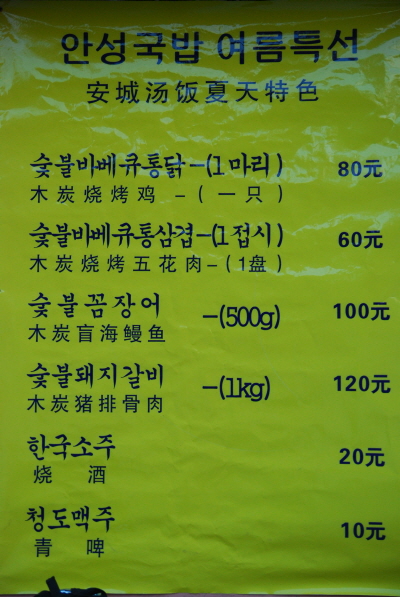 안성국밥 여름특선
安城汤饭夏天特色
숯불비베큐통닭-(1마리) 80元
木炭烧烤鸡 -(一只)
숯불비베큐통삼겹-(1접시) 60元
木炭烧烤五花肉-(1盘)
숯불꼼장어 -(500g) 100元
木炭盲海鳗鱼
숯불돼지갈비 -(1kg) 120元
木炭猪排骨肉
한국소주 20元
烧酒
청도맥주 10元
青啤